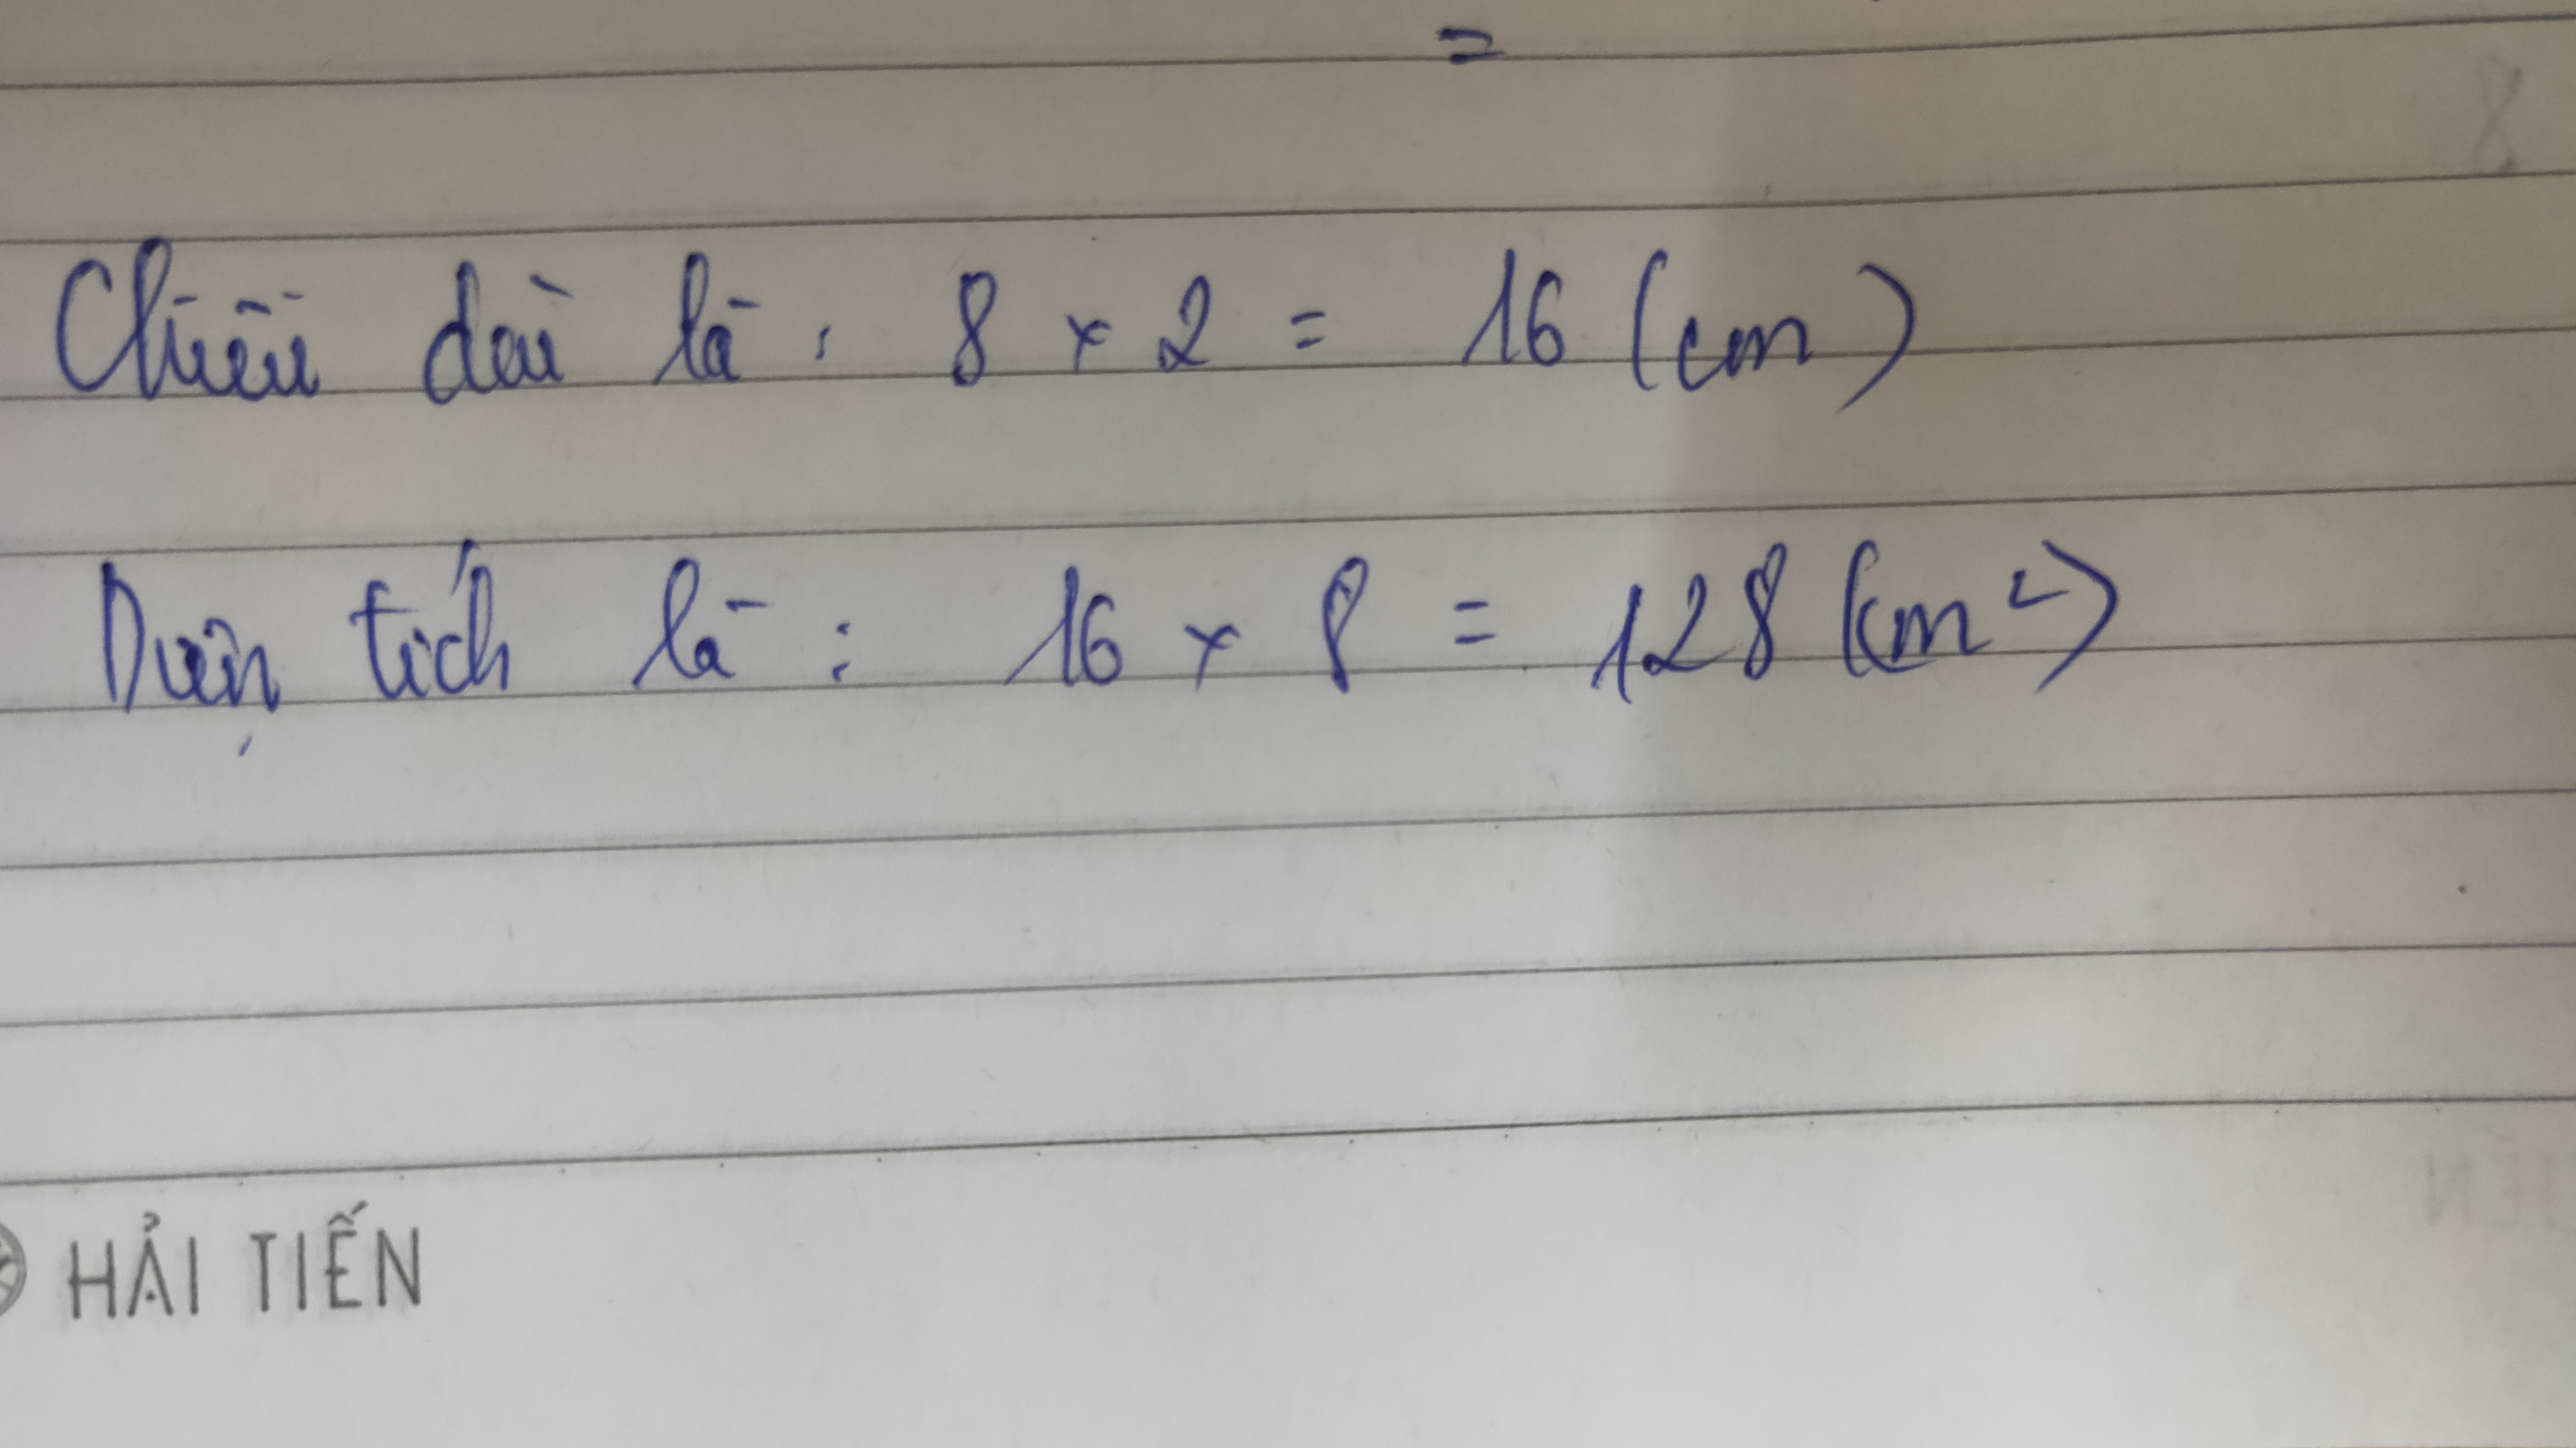 =
Chiều dài là : 8 x 2 = 16 (cm)
Diện tích là : 16 x 8 = 128 (cm²)
HẢI TIẾN